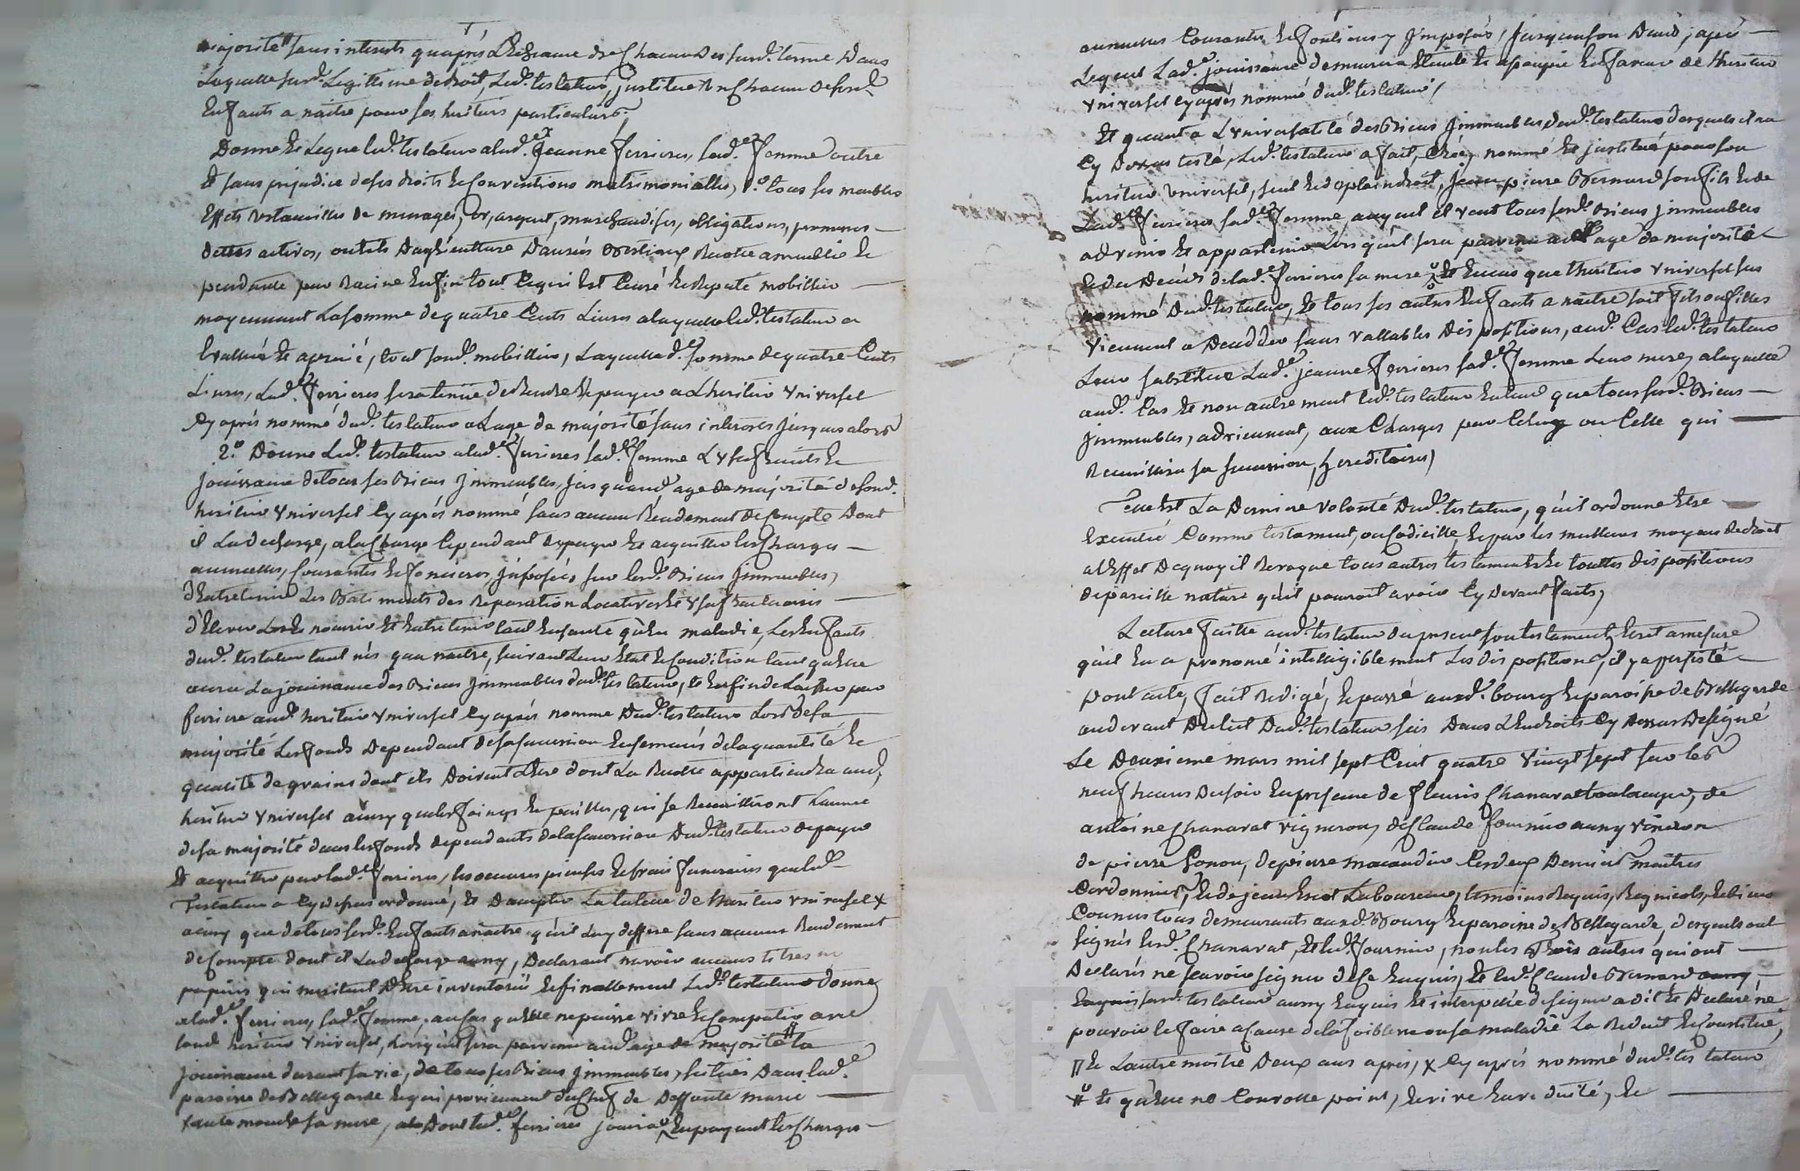 majorité" sans interets qu'aprés L'Echeance de Chacun des susd. terme Dans
Laquelle susd. Legittime de droit, Led. testateur, justitue un Chacun de ses d.
Enfants a naitre pour ses heritiers particuliers,
Donne et Legue led. testateur a lad. Jeanne ferrieres, sad. femme outre
et sans prejudice de ses droits et Conventions matrimonialles, 1.º tous ses meubles
Effets Ustancilles de menages, or, argent, marchandises, obligations, promesses
dettes actives, outils D'agriculture Danrés Bestiaux Recolte ameublie et
pendante par Racine Enfin tout Ce qui Est Censé et Reputé mobillier
moyennant La somme de quatre Cents Livres a laquelle led. testateur a
Evallué et aprecié, tout sond. mobillier, Laquelle d. somme de quatre Cents
Livres, Lad. ferrieres sera tenue de Rendre et payer a L'heritier Universel
Cy aprés nommé dud. testateur a L'age de majorité sans interets jusques alors
2.º Donne Led. testateur a lad. ferrieres sad. femme L'Usufruits et
jouissance de tous ses Biens jmmeubles, jusqu'aud. age de majorité de sond.
heritier Universel Cy aprés nommé sans aucun Rendement de Compte Dont
il La decharge, a la Charge Cependant de payer et acquitter les Charges
annuelles, Courantes et foncieres, jmposées sur lesd. Biens jmmeubles,
d'Entretenir Les Batiments des Reparations Locatives et Usufructuaires
d'Elever Les nourrir et Entretenir tant En santé qu'En maladie, Les Enfants
dud. testateur tant nés qu'a naitre, suivant Leur Etat et Condition tant qu'Elle
aura La jouissance des Biens jmmeubles dud. testateur, et Enfin de Laisser par
ferriere aud. heritier Universel Cy aprés nommé Dud. testateur Lors de sa
majorité Les fonds Dependant de sa succession Ensemencés de la quantité et
qualité de grains dont ils Doivent L'Etre dont La Recolte appartiendra aud.
heritier Universel ainsy que les foins et pailles, qui se Recuilliront L'année
de sa majorité dans les fonds dependants de la succession Dud. testateur de payer
et acquitter par lad. ferrieres, les oeuvres pieuses et frais funeraires que led.
Testateur a Cy dessus ordonné, et D'accepter La tutelle de L'heritier Universel X
ainsy que de tous sesd. Enfants a naitre qu'il Luy deffere sans aucun Rendement
de Compte dont il La decharge aussy, Declarant n'avoir aucuns titres ni
papiers qui meritent D'Etre inventoriés Et finallement Led. testateur donne
a lad. ferrieres, sad. femme, au cas qu'Elle ne puisse vivre et Compatir avec
sond. heritier Universel, Lorsqu'il sera parvenu aud. age de majorité # La
jouissance durant sa vie, de tous ses Biens jmmeubles, situés Dans lad.
paroisse de Bellegarde Et qui proviennent du Chef de Deffunte marie
sa mere, a la Dont lad. ferrieres jouira En payant les Charges
annuelles Courantes Et foncieres y jmposés, jusqu'a son Décés, aprés
Lequel Lad. jouissance demeurera Eteinte et assoupie En faveur de L'heritier
Universel Cy aprés nommé dud. testateur,
Et quant a L'Universalité des Biens jmmeubles dud. testateur desquels il n'a
Cy Dessus testé, Led. testateur a fait, Créé, nommé Et justitué pour son
heritier Universel, seul et de plein droit, jean pierre Bernard son fils Et de
Lad. ferrieres sad. femme, auquel il veut tous sesd. Biens jmmeubles
advenir et appartenir Lors qu'il sera parvenu a L'age de majorité
Et du Décés de lad. ferrieres sa mere Et En cas que L'heritier Universel sus
nommé Dud. testateur, Et tous ses autres Enfants a naitre soit fils ou filles
viennent a Decedder sans vallables Dispositions, aud. Cas led. testateur
Leur substitue Lad. jeanne ferrieres sad. femme Leur mere, a laquelle
aud. Cas Et non autrement led. testateur Entend que tous sesd. Biens
jmmeubles, adviennent, aux Charges par Celuy ou Celle qui
Recuillira sa succession, hereditaires,
Telle Est La Derniere volonté Dud. testateur, qu'il ordonne Etre
Executé Comme testament, ou Codicille Et par les meilleurs moyens de droit
a L'Effet De quoy il Revoque tous autres testaments Et touttes dispositions
de pareille nature qu'il pourroit avoir Cy Devant faits,
Lecture faitte aud. testateur du present son testament, Ecrit a mesure
qu'il En a prononcé intelligiblement Les dispositions, il y a persisté
Dont acte, fait Redigé, Et passé aud. bourg Et paroisse de Bellegarde
au devant Du Lit Dud. testateur sis Dans L'Endroit Cy Dessus Designé
Le Deuxieme mars mil sept Cent quatre vingt sept sur les
neuf heures Du soir En presence de fleuris Chanavat de
antoine Chanavat vigneron, de Claude fournier aussy vigneron
de pierre Gonon, de pierre macaudier Les deux Derniers maitres
Cordonnier, Et de jean Laboureur, temoins Requis, Regnicols, Et bien
Connus tous demeurants aud. Bourg Et paroisse de Bellegarde, desquels ont
signés lesd. Chanavat, Et led. fournier, non les trois autres qui ont
Declarés ne sçavoir signer de Ce Enquis, Et led. Claude Bernard
testateur aussy Enquis Et interpellé de signer a dit Et Declaré ne
pouvoir le faire a Cause de la foiblesse ou sa maladie La Reduit Et Constitué,
" Et L'autre moitié Deux ans aprés, X Cy aprés nommé dud. testateur
# Et qu'Elle ne Convolle point, Et vive En viduité, Et